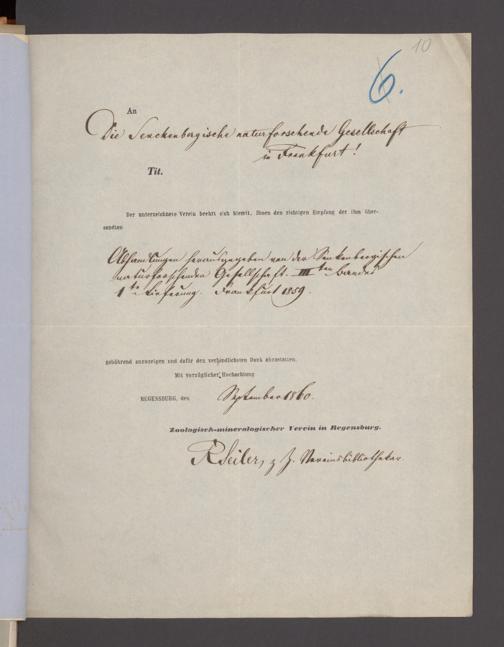 10
6.
An
Die Senckenbergische naturforschende Gesellschaft
in Frankfurt!
Tit.
Der unterzeichnete Verein beehrt sich hiemit, Ihnen den richtigen Empfang der ihm über-
sendten
Abhandlungen herausgegeben von der Senkenbergischen
naturforschenden Gesellschaft. III ten Bandes
1 te Lieferung. Frankfurt 1859.
gebührend anzuzeigen und dafür den verbindlichsten Dank abzustatten.
Mit vorzüglicher Hochachtung
REGENSBURG, den September 1860.
Zoologisch-mineralogischer Verein in Regensburg.
z. Z. Vereinsbibliothekar